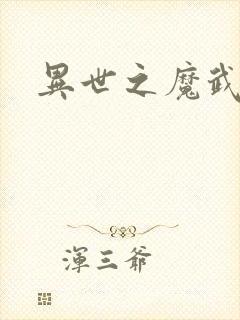 異世之魔武
渾三爺